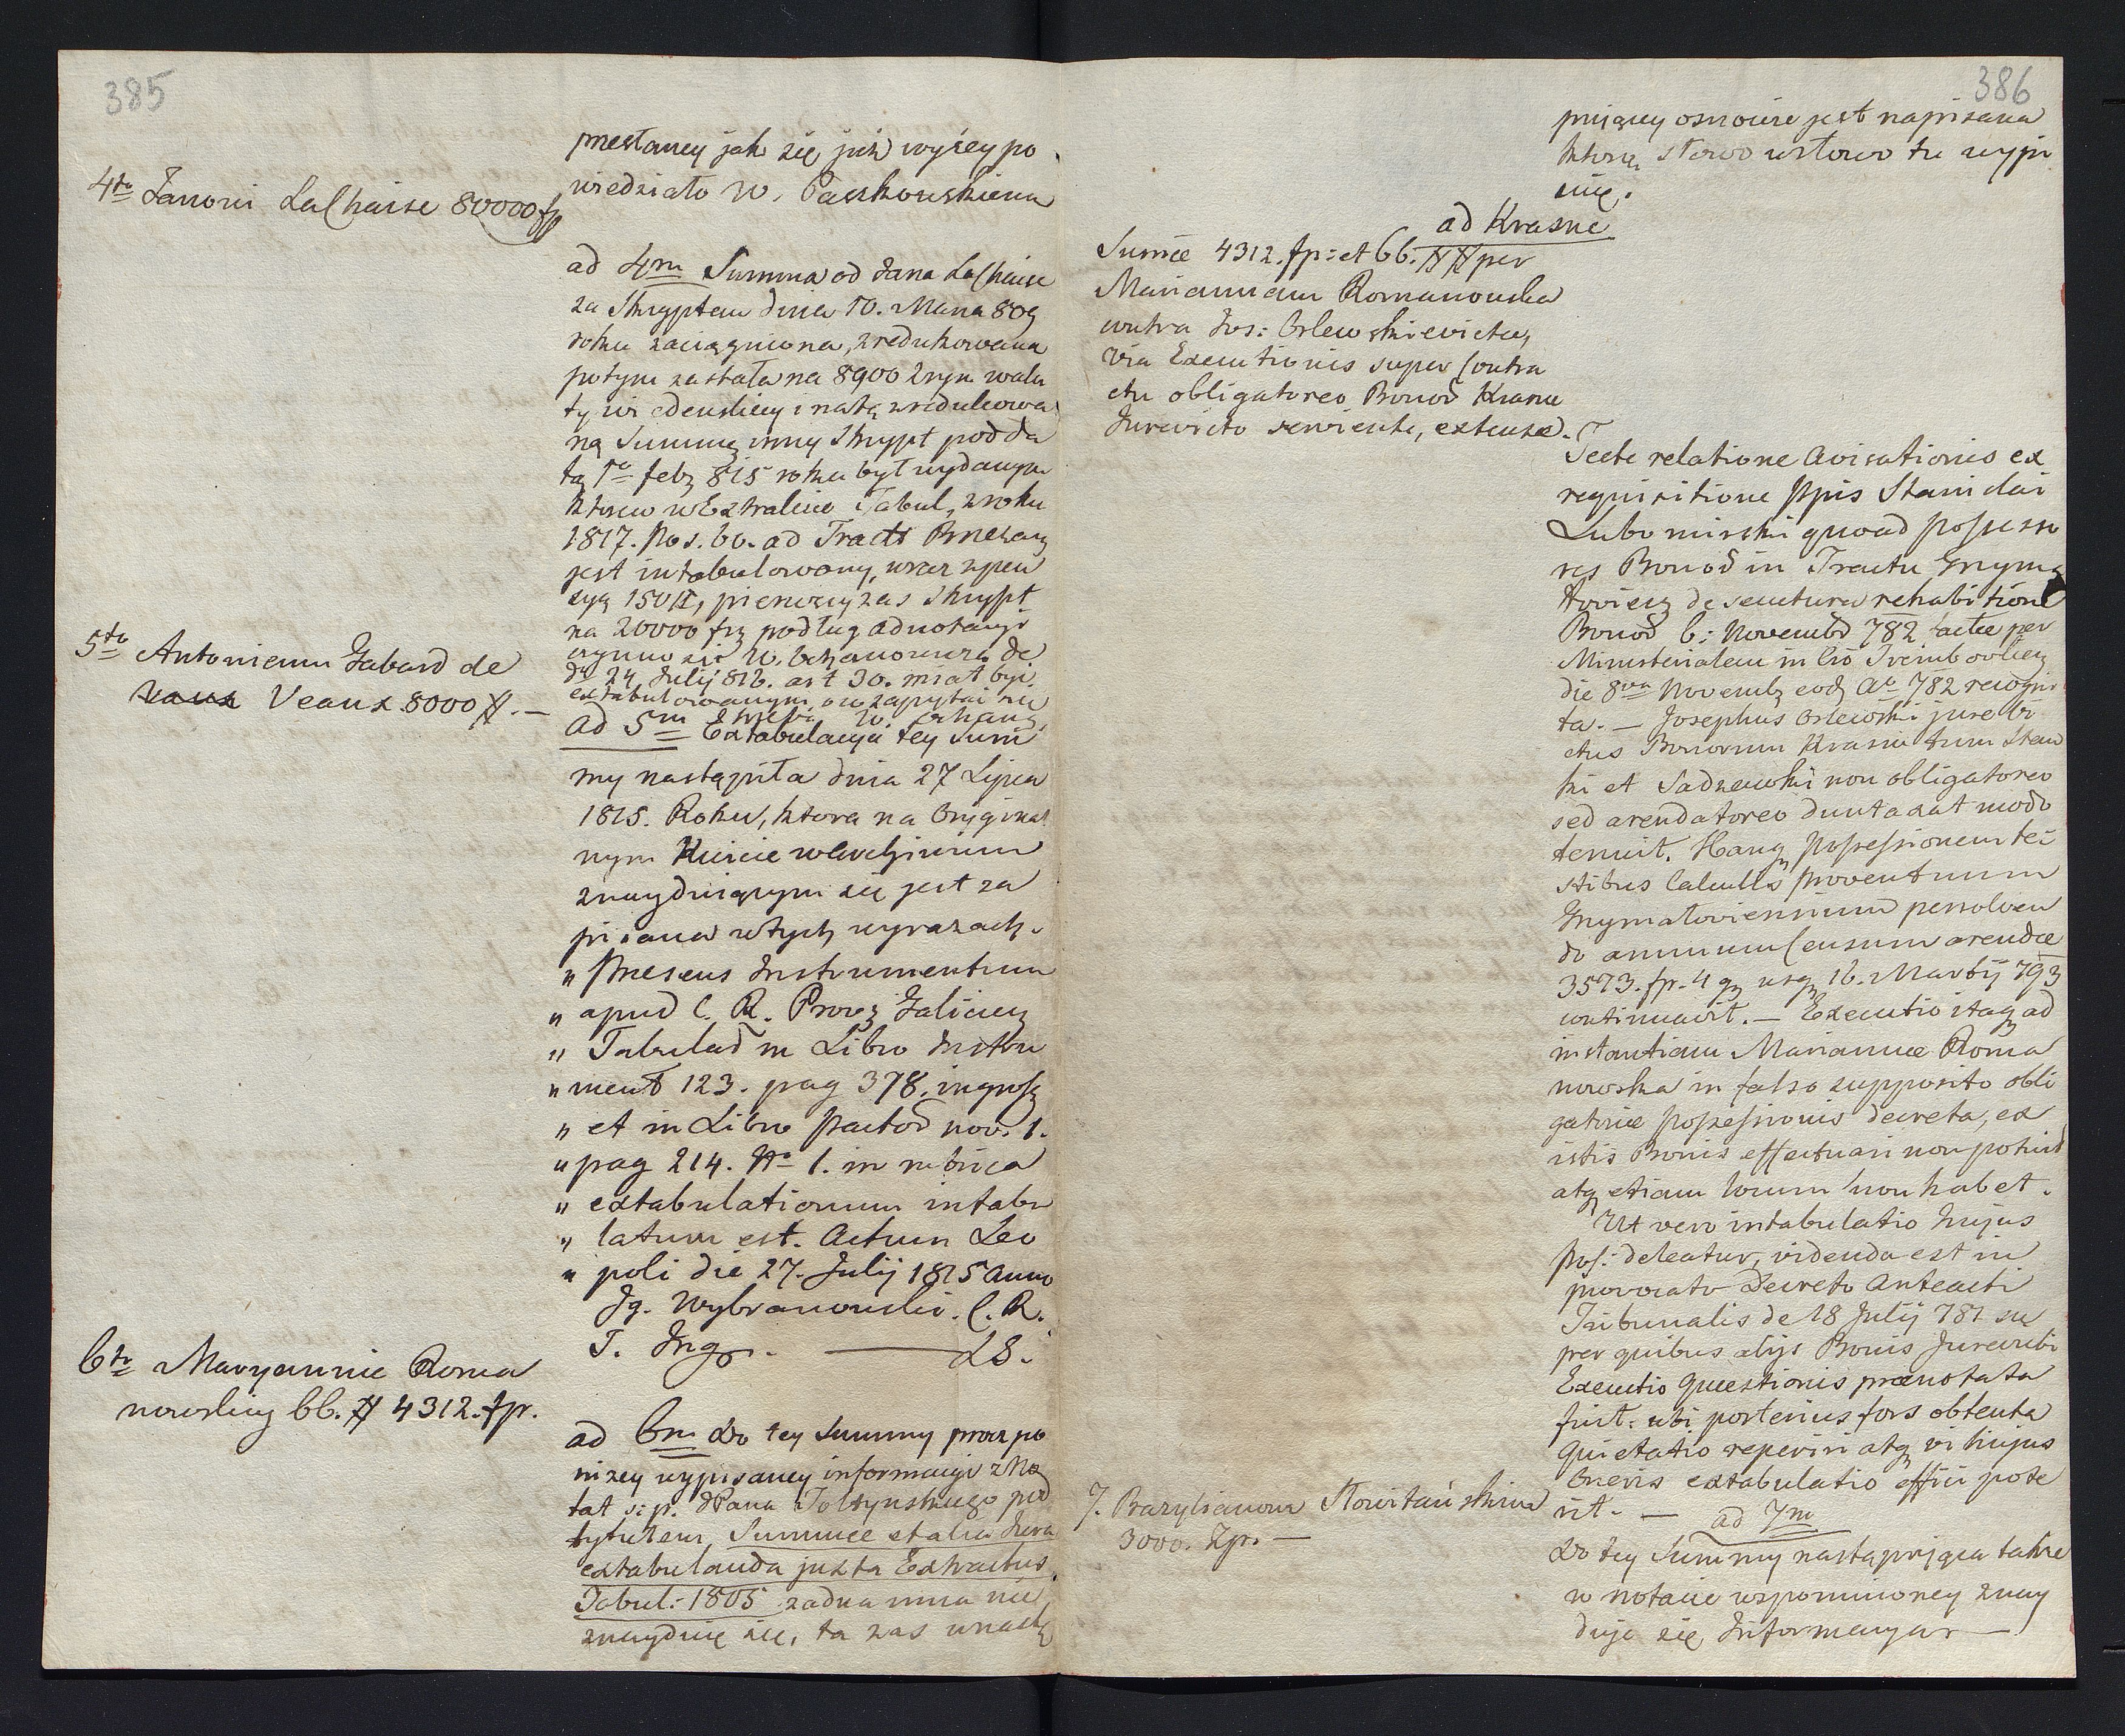 385
przesłaney jak się już wyżey po
wiedziało W. Paszkowskiemu
4to Janowi LaChaise 80000 fp
ad 4m Summa od Jana LaChaise
za Skryptem dnia 10. Marca 809
roku zaciągniona, zredukowana
potym została na 8900 Zryn walu
ty wiedeńskiey i na tę zredukowa
ną Summę inny Skrypt pod da
tą 1a feb 815 roku był wydanym
ktoren w Extrakcie Tabul, z roku
1817. Pos. 60. ad Tractt Brzezan
jest intabulowany, wraz z pen
syą 150 #, pierwszy zas Skrypt
na 20000 podług adnotacyi
de
dto 24 July 816. art 30. miał być
extabulowanym, o co zapytać się
5to Antoniemu Gabard de
Vaux Veaux 8000 #. —
ad 5m Extabulacya tey Sum
my nastąpiła dnia 27 Lipca
1815. Roku, ktora na Orygynal
nym Kwicie w Archiwum
znayduiącym się jest za
pisana w tych wyrazach.
" Presens Instrumentum
" apud C. R. Prov Galicien
" Tabulad in Libro Instru
" ment 123. pag 378. ingross
" et in Libro Factod nov. 1.
" pag 214. No 1. in rubrica
" extabulationum intabu
" latum est. Actum Leo
" poli die 27. July 1815 anno
Jg. Wybranowski. C. R.
T. Ingr. — LS.
6to Maryannie Roma
nowskiey 66. # 4312. fp.
ad 6m Do tey Summy procz po
niżey wypisaney informacyi z No
tat s: p. JPana Toltynskiego pod
tytułem, Summae et alia Jura
extabulanda juxta Extractus
Tabul: 1805 żadna inna nie
znayduie się, ta zas w naste
386
puiącey osnowie jest napisana
ktorą słowo w słowo tu wypi
suię.
ad Krasne
Sumae 4312. fp: et 66. ## per
Mariannam Romanowska
contra Jos: Orlewski evictu,
via Executionis super Contra
ctu obligatoreo Bonod Krasne
Jurevicto serviente, extensae.
Teste relatione Avisationis ex
requisitione Ppis Stanislai
Lubomirski quoad possesso
res Bonod in Tractu Grzyma
łoviens de secutura rehabitione
Bonod 6: Novembr 782 factae per
Ministerialem in Cio Trembovlien
die 8va Novemb eod Ao 782 recogni
ta. — Josephus Orlewski jure vi
ctus Bonorum Krasne tum Staw
ki et Sadzawki non obligatoreo
sed arendatoreo duntaxat modo
tenuit. Hanq Possessionem te
stibus Calculis proventuum
Grzymałoviensium persolven
do annuum Censum arendae
3573. fp. 4 g usq 16. Martij 793
continuavit. — Executio itaq ad
instantiam Mariannae Roma
nowska in falso supposito obli
gatoriae possessionis decreta, ex
istis Bonis effectuari non potuit
atq etiam locum non habet.
Ut vero intabulatio hujus
Pos: deleatur, videnda est in
provocato Decreto Anteacti
Tribunalis de 18 July 781 su
per quibus alijs Bonis Jurevicti
Executio Quaestionis praenotata
fuit: ubi posterius fors obtenta
Quietatio reperiri atq vi hujus
Oneris extabulatio effici pote
rit. —
7. Bazylianom Słowitańskim
3000. Zp. —
ad 7m
Do tey Summy następuiąca także
w notacie wspomnioney znay
duje się Informacya —